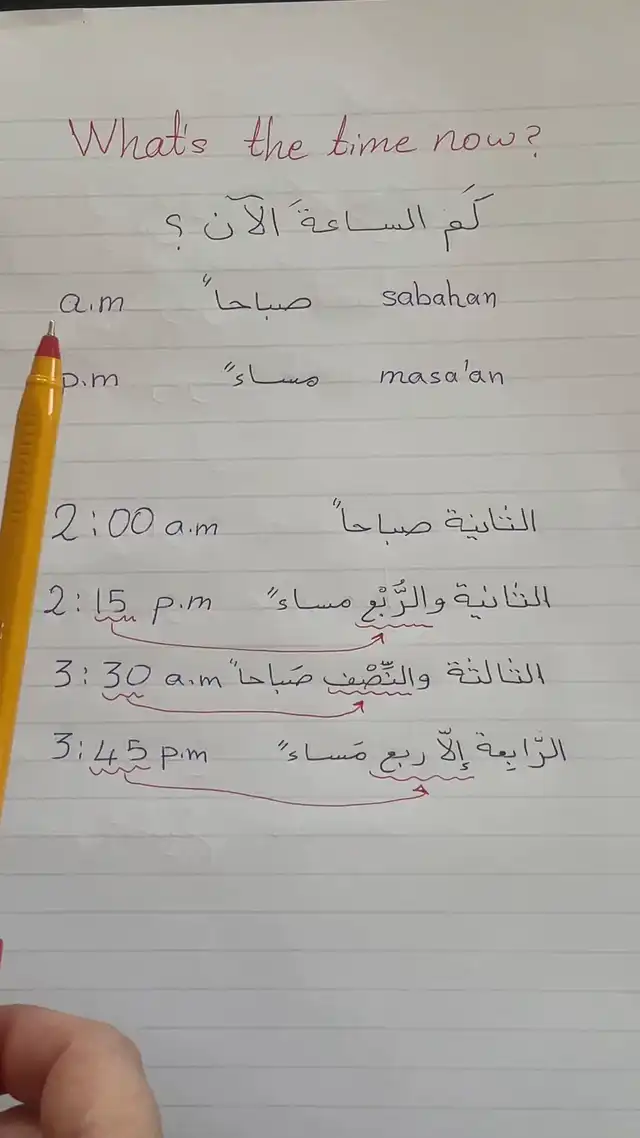 What's the time now?
كَم الساعةَ الآن ؟
a.m صباحاً sabahan
p.m مساءً masa'an
2:00 a.m الثانية صباحاً
2:15 p.m الثانية والرُّبْع مساءً
3:30 a.m الثالثة والنِّصْف صَباحاً
3:45 p.m الرّابِعة إلّا ربع مَساءً